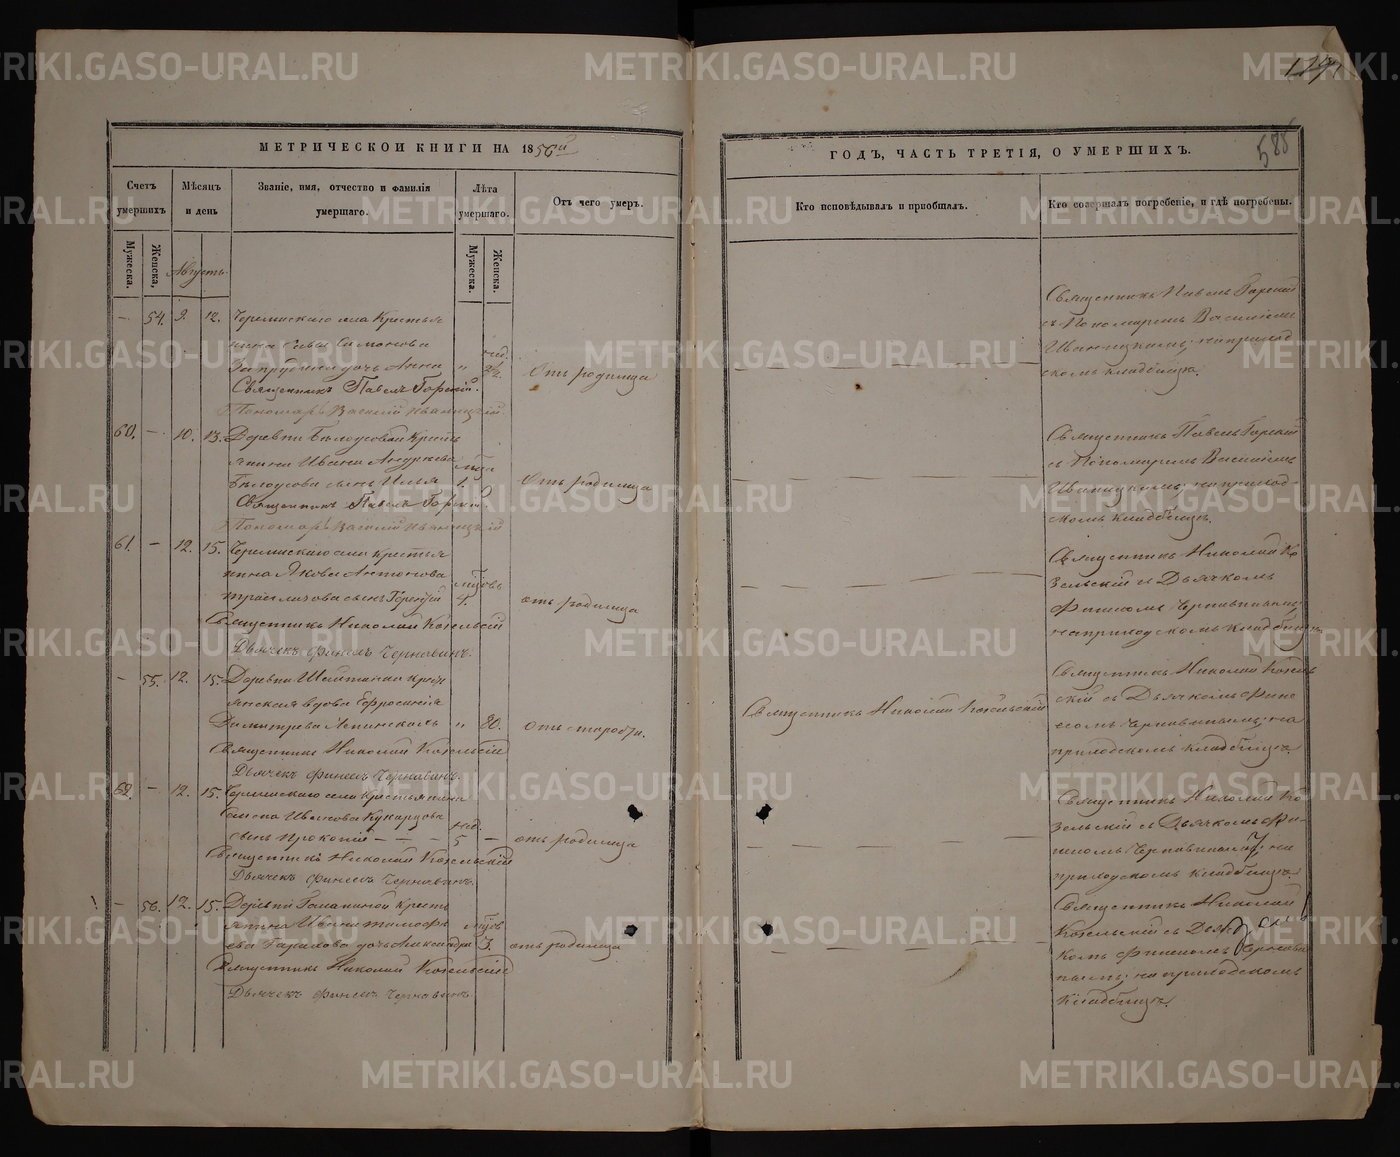 МЕТРИЧЕСКОЙ КНИГИ НА 1856й
ГОДЪ, ЧАСТЬ ТРЕТІЯ, О УМЕРШИХЪ.
588
Счетъ умершихъ
Мѣсяцъ и день
Званіе, имя, отчество и фамилія умершаго.
Лѣта умершаго.
Отъ чего умеръ.
Кто исповѣдывалъ и пріобщалъ.
Кто совершалъ погребеніе, и гдѣ погребены.
Мужеска.
Женска,
Мужеска.
Женска.
Августъ
— 54. 9. 12. Черемискаго села Крестья
нина Савы Симонова
дочь Анна
Священникъ Павелъ Горскій.
Пономарь Василій Иваницкій
Отъ родимца
Священникъ Павелъ Горскій
съ Пономаремъ Василіемъ
Иваницкимъ; на приход-
скомъ кладбищѣ.
60. — 10. 13. Деревни Бѣлоусовой Кресть
янина Ивана Андреева
Бѣлоусова сынъ Илья
Священникъ Павелъ Горскій.
Пономарь Василій Иваницкій
Отъ родимца
Священникъ Павелъ Горскій
съ Пономаремъ Василіемъ
Иваницкимъ; на приход-
скомъ кладбищѣ.
61. — 12. 15. Черемискаго села Крестья
нина Якова Антонова
сынъ
4.
Священникъ Николай Козельскій
Дьячекъ Финеесъ Чернавинъ.
отъ родимца
Священникъ Николай Ко
зельскій съ Дьячкомъ
Финеесомъ Чернавинымъ;
на приходскомъ кладбищѣ.
— 55. 12. 15. Деревни Шайтанки крест
янская вдова Ефросинія
Димитрева
" 80.
Священникъ Николай Козельскій
Дьячекъ Финеесъ Чернавинъ.
Отъ старости.
Священникъ Николай Козельскій
Священникъ Николай Козель
скій съ Дьячкомъ Фине
есомъ Чернавинымъ; на
приходскомъ кладбищѣ.
62. — 12. 15. Черемискаго села Крестьянина
Ивановa Кукарцова
сынъ Прокопій — — —
нед.
5 —
Священникъ Николай Козельскій
Дьячекъ Финеесъ Чернавинъ.
отъ родимца
Священникъ Николай Ко
зельскій съ Дьячкомъ Фи-
неесомъ Чернавинымъ; на
приходскомъ кладбищѣ.
— 56. 12. 15. Деревни Кресть
янина Ивана Тимофе
ева дочь Александра
3.
Священникъ Николай Козельскій
Дьячекъ Финеесъ Чернавинъ
отъ родимца
Священникъ Николай
Козельскій съ Дьяч
комъ Финеесомъ Чернави
нымъ; на приходскомъ
кладбищѣ.
METRIKI.GASO-URAL.RU